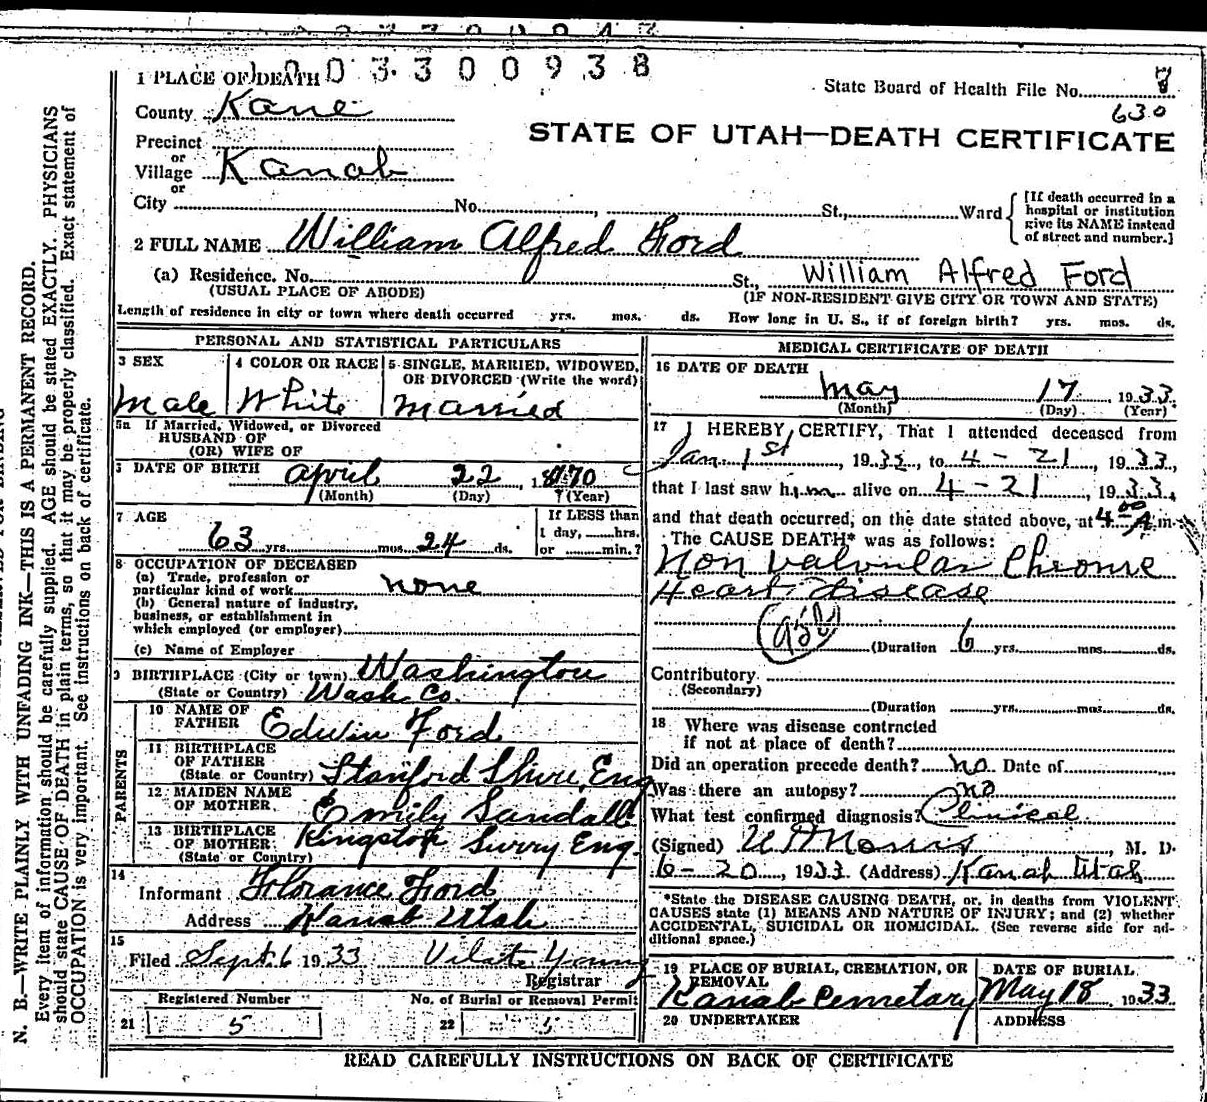 1003300938
1 PLACE OF DEATH
State Board of Health File No.
630
County Kane
STATE OF UTAH—DEATH CERTIFICATE
Precinct
or
Village Kanab
or
City No. , St., Ward
[If death occurred in a
hospital or institution
give its NAME instead
of street and number.]
2 FULL NAME William Alfred Ford
(a) Residence. No. St., William Alfred Ford
(USUAL PLACE OF ABODE) (IF NON-RESIDENT GIVE CITY OR TOWN AND STATE)
Length of residence in city or town where death occurred yrs. mos. ds. How long in U. S., if of foreign birth? yrs. mos. ds.
PERSONAL AND STATISTICAL PARTICULARS
3 SEX
Male
4 COLOR OR RACE
White
5 SINGLE, MARRIED, WIDOWED,
OR DIVORCED (Write the word)
Married
5a If Married, Widowed, or Divorced
HUSBAND OF
(OR) WIFE OF
DATE OF BIRTH April 22, 1870
(Month) (Day) (Year)
7 AGE
63 yrs. mos. 24 ds.
If LESS than
1 day, hrs.
or min.?
8 OCCUPATION OF DECEASED
(a) Trade, profession or
particular kind of work none
(b) General nature of industry,
business, or establishment in
which employed (or employer)
(c) Name of Employer
9 BIRTHPLACE (City or town) Washington
(State or Country) Wash Co.
PARENTS
10 NAME OF
FATHER Edwin Ford
11 BIRTHPLACE
OF FATHER
(State or Country) Stanford Shire, Eng
12 MAIDEN NAME
OF MOTHER Emily Sandall
13 BIRTHPLACE
OF MOTHER Kingston Surry Eng.
(State or County)
14
Informant Florance Ford
Address Kanab Utah
15
Filed Sept. 6 1933 Vilate Young
Registrar
Registered Number
21 5
No. of Burial or Removal Permit
22
MEDICAL CERTIFICATE OF DEATH
16 DATE OF DEATH
May 17 1933
(Month) (Day) (Year)
17 I HEREBY CERTIFY, That I attended deceased from
Jan. 1st, 1933, to 4-21, 1933,
that I last saw him alive on 4-21, 1933,
and that death occurred, on the date stated above, at 4:00 A m.
The CAUSE DEATH* was as follows:
Non Valvular Chronic
Heart disease
(Duration 6 yrs. mos. ds.
Contributory
(Secondary)
(Duration yrs. mos. ds.
18 Where was disease contracted
if not at place of death?
Did an operation precede death? no Date of
Was there an autopsy? no
What test confirmed diagnosis? Clinical
(Signed) Norris, M. D.
6-20, 1933 (Address) Kanab Utah
*State the DISEASE CAUSING DEATH, or, in deaths from VIOLENT
CAUSES state (1) MEANS AND NATURE OF INJURY; and (2) whether
ACCIDENTAL, SUICIDAL OR HOMICIDAL. (See reverse side for ad-
ditional space.)
19 PLACE OF BURIAL, CREMATION, OR
REMOVAL
Kanab Cemetary
DATE OF BURIAL
May 18, 1933
20 UNDERTAKER
ADDRESS
READ CAREFULLY INSTRUCTIONS ON BACK OF CERTIFICATE
N. B.—WRITE PLAINLY WITH UNFADING INK—THIS IS A PERMANENT RECORD.
Every item of information should be carefully supplied. AGE should be stated EXACTLY. PHYSICIANS
should state CAUSE OF DEATH in plain terms, so that it may be properly classified. Exact statement of
OCCUPATION is very important. See instructions on back of certificate.